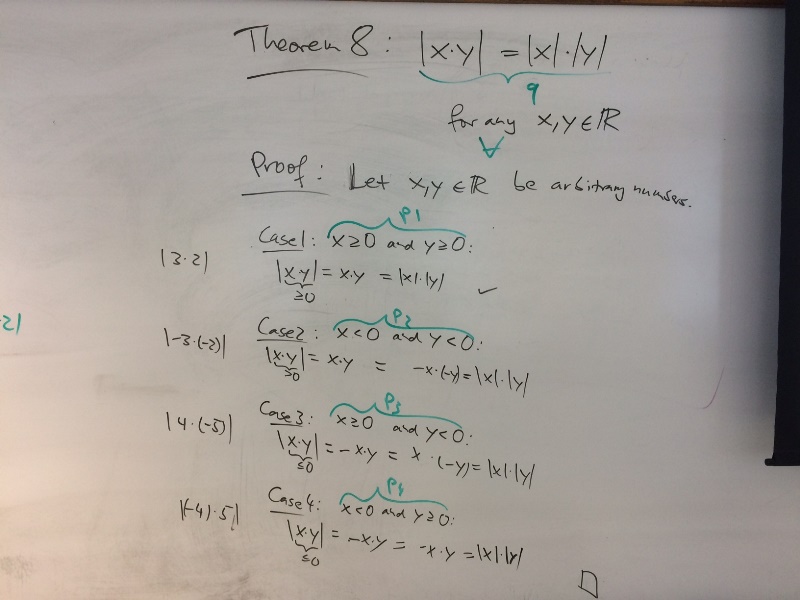 Theorem 8: |x·y| = |x|·|y|
q
for any x,y ∈ ℝ
∀
Proof: Let x,y ∈ ℝ be arbitrary numbers.
P1
Case1: x≥0 and y≥0:
|3·2| |x·y| = x·y = |x|·|y| ✓
≥0
2|
P2
Case2: x<0 and y<0:
|-3·(-2)| |x·y| = x·y = -x·(-y) = |x|·|y|
≥0
P3
Case3: x≥0 and y<0:
|4·(-5)| |x·y| = -x·y = x·(-y) = |x|·|y|
≤0
P4
Case4: x<0 and y≥0:
|(-4)·5| |x·y| = -x·y = -x·y = |x|·|y|
≤0
□